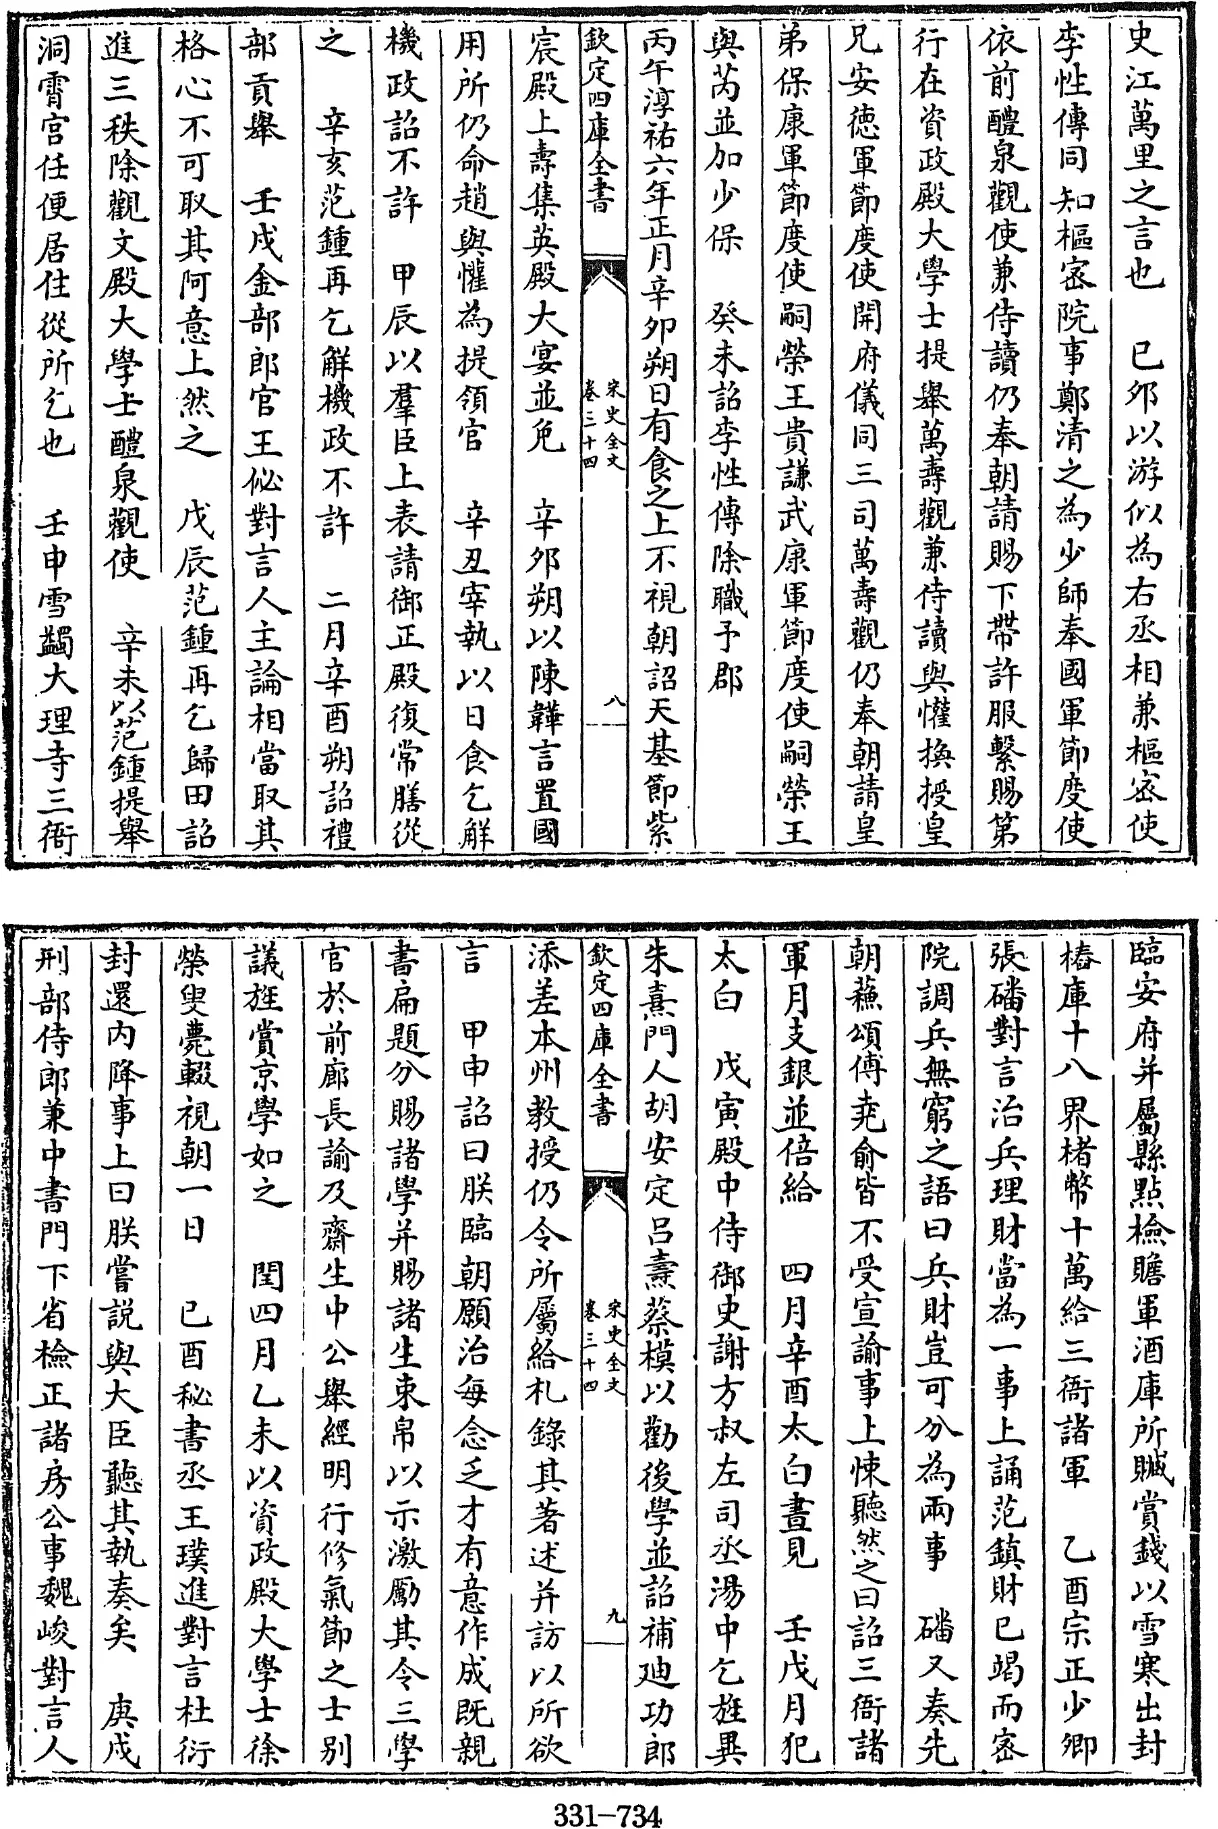 史江萬里之言也　己夘以游佀為右丞相兼樞宻使
李性傳同知樞宻院事鄭清之為少師奉國軍節度使
依前醴泉觀使兼侍讀仍奉朝請賜下帶許服繫賜第
行在資政殿大學士提舉萬壽觀兼侍讀與懽換授皇
兄安徳軍節度使開府儀同三司萬壽觀仍奉朝請皇
弟保康軍節度使嗣榮王貴謙武康軍節度使嗣榮王
與芮並加少保　癸未詔李性傳除職予郡
丙午淳祐六年正月辛夘朔日有食之上不視朝詔天基節紫
欽定四庫全書
宋史全文
卷三十四
八
宸殿上壽集英殿大宴並免　辛夘朔以陳韡言置國
用所仍命趙與懽為提領官　辛丑宰執以日食乞解
機政詔不許　甲辰以羣臣上表請御正殿復常膳從
之　辛亥范鍾再乞解機政不許　二月辛酉朔詔禮
部貢舉　壬戌金部郎官王佖對言人主論相當取其
格心不可取其阿意上然之　戊辰范鍾再乞歸田詔
進三秩除觀文殿大學士醴泉觀使　辛未以范鍾提舉
洞霄宫任便居住從所乞也　壬申雪蠲大理寺三衙
臨安府并屬縣㸃檢贍軍酒庫所贓賞錢以雪寒出封
樁庫十八界楮幣十萬給三衙諸軍　乙酉宗正少卿
張磻對言治兵理財當為一事上誦范鎮財已竭而宻
院調兵無窮之語曰兵財豈可分為兩事　磻又奏先
朝蘓頌傅堯俞皆不受宣諭事上悚聽然之曰詔三衙諸
軍月支銀並倍給　四月辛酉太白晝見　壬戌月犯
太白　戊寅殿中侍御史謝方叔左司丞湯中乞旌異
朱熹門人胡安定吕燾蔡模以勸後學並詔補廸功郎
欽定四庫全書
宋史全文
卷三十四
九
添差本州教授仍令所屬給札錄其著述并訪以所欲
言　甲申詔曰朕臨朝願治每念乏才有意作成既親
書扁題分賜諸學并賜諸生束帛以示激勵其令三學
官於前廊長諭及齋生中公舉經明行修氣節之士别
議旌賞京學如之　閏四月乙未以資政殿大學士徐
榮叟薨輟視朝一日　己酉秘書丞王璞進對言杜衍
封還内降事上曰朕嘗説與大臣聽其執奏矣　庚戌
刑部侍郎兼中書門下省檢正諸房公事魏峻對言人
331-734